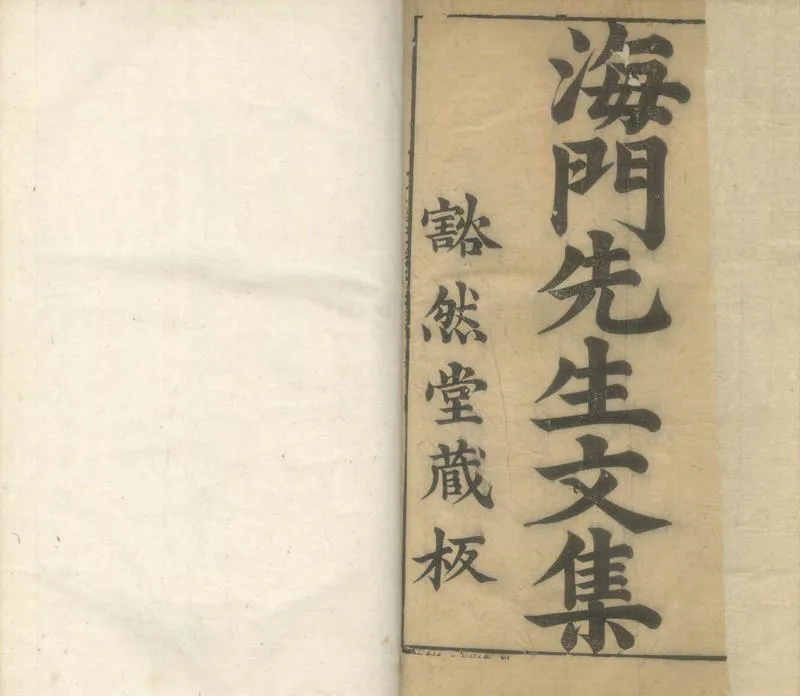 海門先生文集
豁然堂藏板